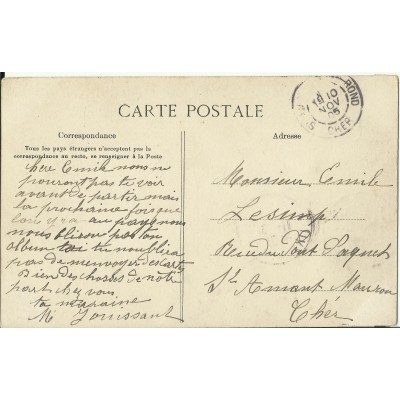 CARTE POSTALE
Correspondance
Tous les pays étrangers n'acceptent pas la
correspondance au recto, se renseigner à la Poste
chere Emile nous ne
pouront pas te voir
avant de partir mais
la prochaine forsque
on y ra au payenous
nous bliron pas ton
album toi tu noublira
pas de menvoyer des carte
Bien des choses de notre
part chez vous
ta maraine
M Joussant
Adresse
Monsieur Emile
Lesimpl
Rue du Pont Paquet
St Amant Mouron
Cher
10
NOV
CHER